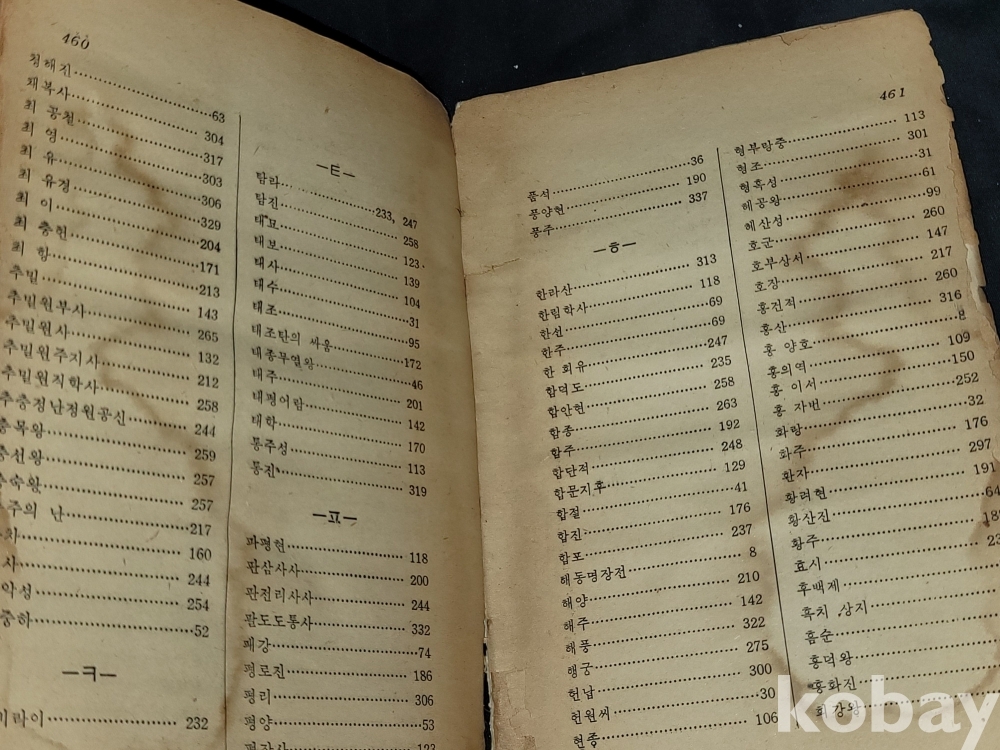 460
청해진 63
채복사 304
최 공철 317
최 영 303
최 유 306
최 유정 329
최 이 204
최 충헌 171
최 항 213
추밀 143
추밀원부사 265
추밀원사 132
추밀원주지사 212
추밀원직학사 258
추충정난정원공신 244
충목왕 259
충선왕 257
충숙왕 257
주의 난 217
차 160
사 244
악성 254
중하 52
—ㅋ—
미라이 232
—ㅌ—
탐라 233, 247
탐진 258
태묘 123
태보 139
태사 104
태수 31
태조 95
태조탄의 싸움 172
태종무열왕 46
태주 201
태평어람 142
태학 170
통주성 113
통진 319
—ㅍ—
파평현 118
판삼사사 200
판전리사사 244
판도도통사 332
패강 74
평로진 186
평리 306
평양 53
평장사 123
461
품석 36
풍양현 190
풍주 337
—ㅎ—
한라산 313
한림학사 118
한선 69
한주 69
한 희유 247
합덕도 235
함안현 258
함종 263
함주 192
합단적 248
합문지후 129
합절 41
합진 176
합포 237
해동명장전 8
해양 210
해주 142
해풍 322
행궁 275
헌납 300
헌원씨 30
현종 106
형부낭중 113
형조 301
형혹성 31
혜공왕 61
혜산성 99
호군 260
호부상서 147
호장 217
홍건적 260
홍산 316
홍 양호 8
홍의역 109
홍 이서 150
홍 자번 252
화랑 32
화주 176
환자 297
황려현 191
황산진 64
황주
효시
후백제
흑치 상지
흠순
흥덕왕
흥화진
희강왕
kobay